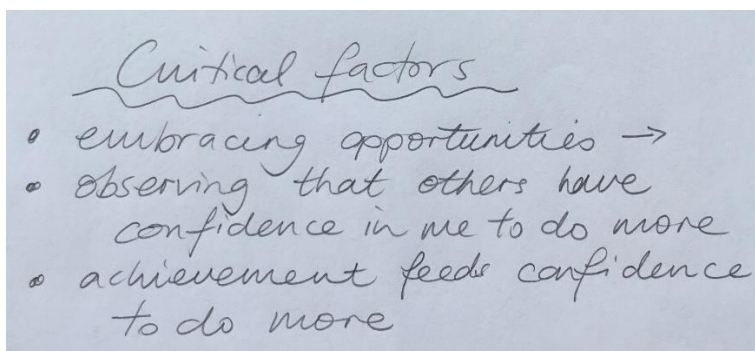 Critical factors
• embracing opportunities →
• observing that others have
confidence in me to do more
• achievement feeds confidence
to do more